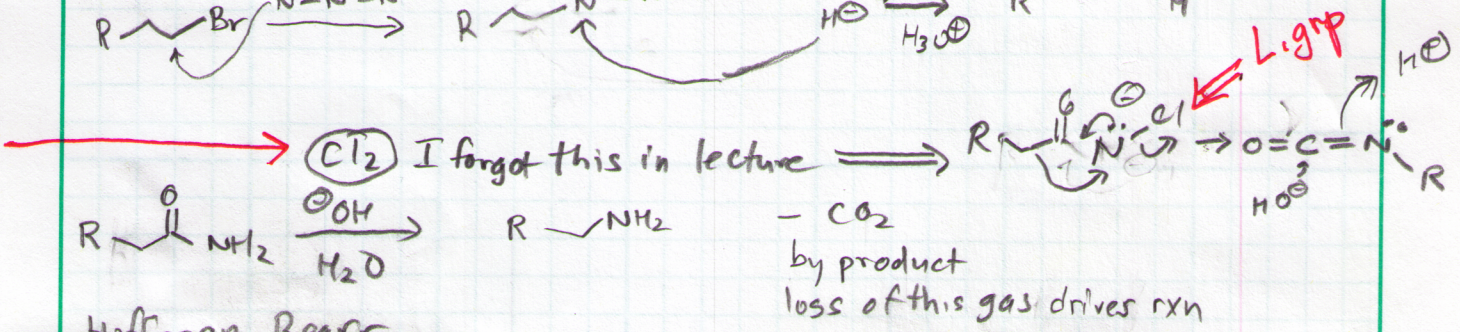 R Br N=N=N R N H⊖ R H
H₃O⊕
L.grp
H⊕
Cl₂ I forgot this in lecture R O ⊖ N Cl → O=C=N R
HO⊖
R O NH₂ ⊖OH R NH₂ - CO₂
H₂O by product
loss of this gas drives rxn